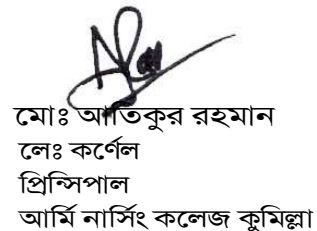 মোঃ আতিকুর রহমান
লেঃ কর্ণেল
প্রিন্সিপাল
আর্মি নার্সিং কলেজ কুমিল্লা